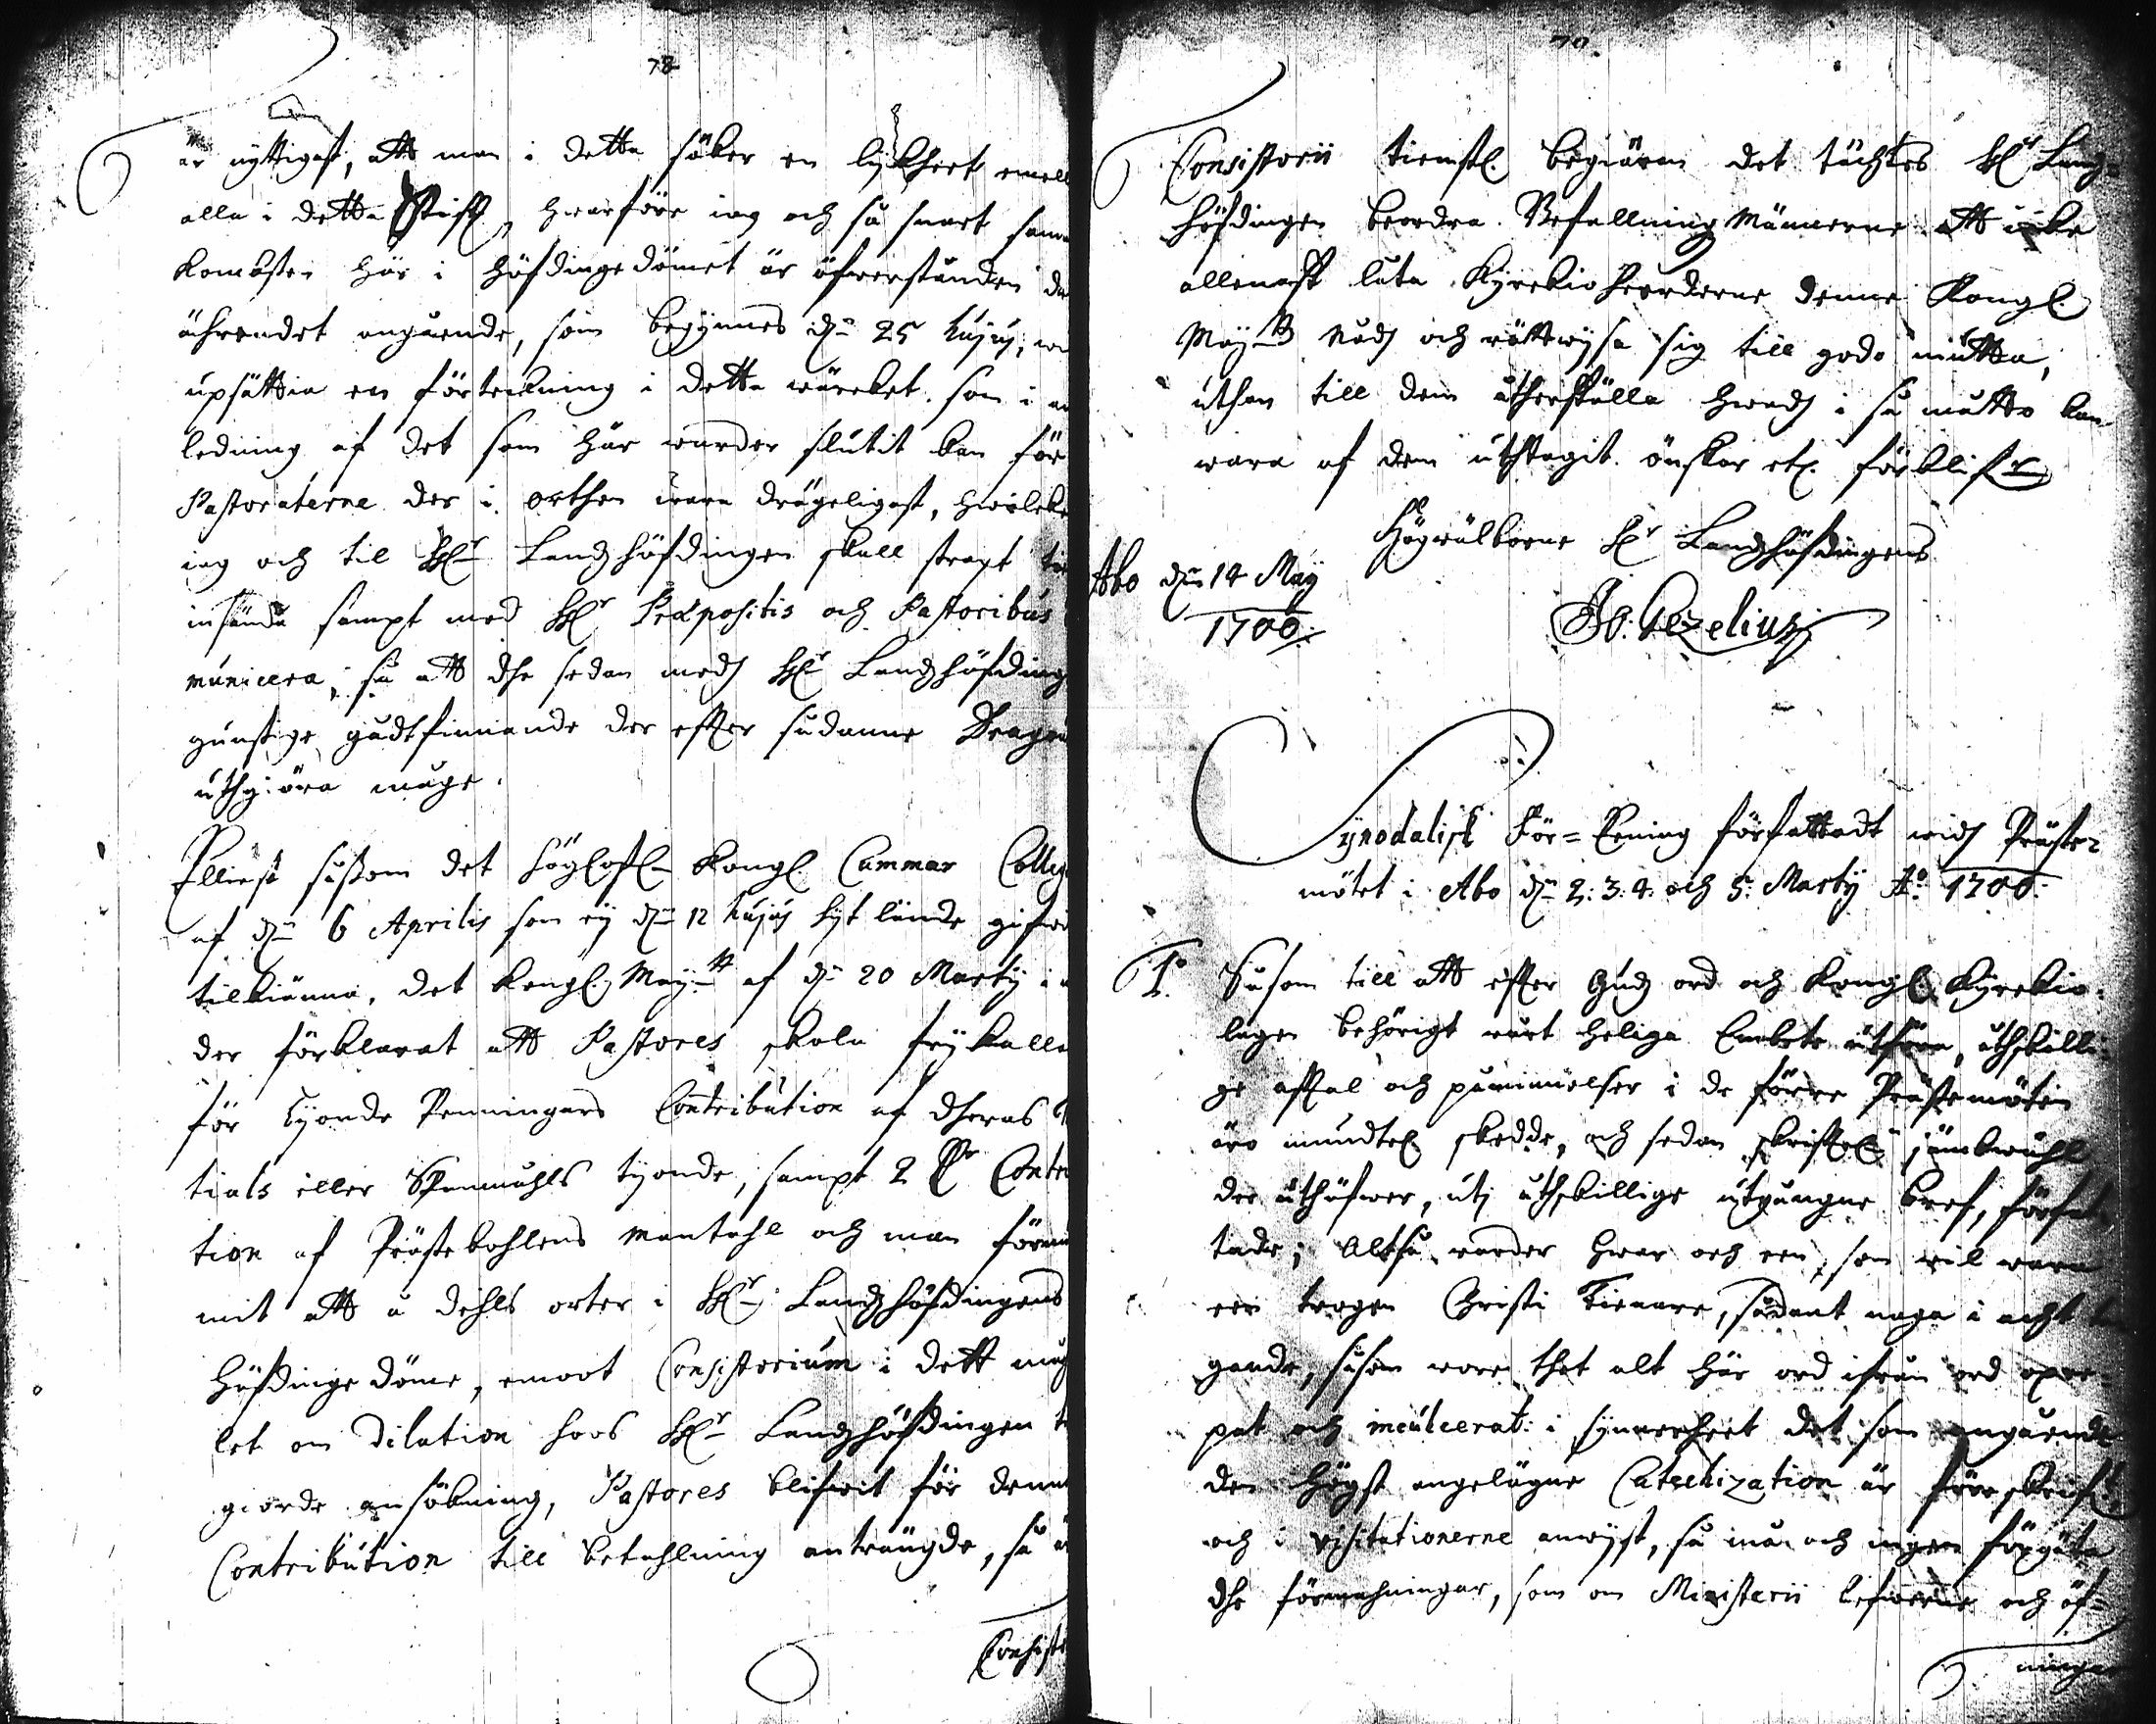 78
är nyttigast, att man i detta söker en lijkheet emell
alla i detta Stift, hwarföre iag och så snart sam
komsten här i höfdingedömet är öfwerstånden
ährendet angående, som begynnes d. 25 hujus,
upsättia en förteckning i detta wärcket, som i an
ledning af det som här warder slutit kan för
Pastoraterne der i orthen wara drägeligast, hwilcket
iag och til H. Hr Landzhöfdingen skall straxt
insända sampt med H. Hr Præpositis och Pastoribus
municera, så att dhe sedan med H. Hr Landzhöfding
gunstige gådtfinnande der efter sådanne
uthgiöra måge.
Elliest såssom det höglofl. Kongl. Cammar Colleg
af d. 6 Aprilis som ey d. 12 hujus hijt lände gifwi
tilkiänna, det Kongl. May:tt af d. 20 Martij
der förklarat att Pastores skola frijkallas
för Tijonde Penningars Contribution af dheras
tials eller Spanmåhls tijonde, sampt 2 Contri
tion af Prästebohlens mantahl och man förnu
mit att å dehls orter i H. Hr Landzhöfdingens
höfdingedöme, emoot Consistorium i dett
let om Dilation hoos H. Hr Landzhöfdingen
giorde ansökning, Pastores blifwit för denna
Contribution till betahlning anträngde, så
Consist
79.
Consistorii tienstl. begiären det täcktes H. Hr Landz-
höfdingen beordra Befallningz Männerne att icke
allenast låta Kyrckioheerderne denne Kongl.
May:tz nåd och rättwijsa sig till godo niutta,
uthan till dem åtherställa hwad i så måtto kan
wara af dem uthtagit. önskar etc. förblifr
Högwälborne Hr Landzhöfdingens
Abo d. 14 Maij
1700.
Jo: Gezelius
Synodalisk För=Eening författadt wid Präste-
mötet i Abo d. 2. 3. 4. och 5. Martij Ao 1700.
1o Såsom till att efter Gudz ord och Kongl. Kyrckio-
lagen behörigt wårt heliga Embete utföra, åthskilli-
ge afftal och påminnelser i de förre Prästemöten
äro mundtel. skedde, och sedan skriftel. jämbwähl
der uthöfwer, uti åthskillige utgångne bref, förfat
tade; Altså warder hwar och een, som wil wara
een trogen Christi Tienare, sådant noga i acht
gande, såsom wore thet alt här ord ifrån ord
pat och inculcerat: i synnerheet det som angående
den högst angelägne Catechization är föreskrif
och i visitationerne anwijst, så må och ingen förgäta
dhe förmahningar, som om Ministerii lefwerne och öf-
ninga